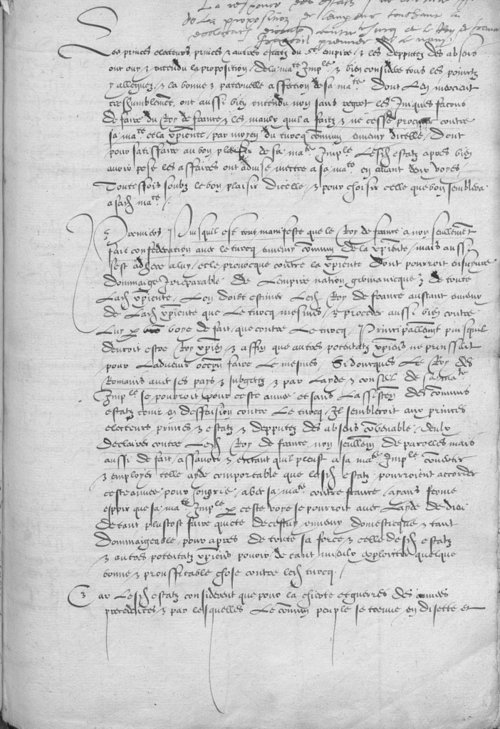 La response des estatz
de la proposition de l'empereur touchant
Les princes electeurs princes & autres estatz du St empire, & les deputtez des absens
ont ouy & entendu la proposition de la mate Imple, & bien considere tous les pointz
y alleguez, & la bonne & paternelle affection de sa mate, dont Ilz mercient
treshumblement, ont aussi bien entendu non sans regret les Iniques facons
de faire du Roy de france, & les maulx quil a faitz & ne cesse procurer contre
sa mate et la xpiente, par moyen du turcq commun ennemy dicelle, dont
pour satisfaire au bon plesir de sa mate Imple Lesdit estatz apres bien
avoir pese les affaires ont advise mectre a sa mate en avant deux voyes
Touteffois soubz le bon plaisir dicelle, & pour choisir celle que bon semblera
a sadit mate
Premiers, puisquil est tout manifeste que le Roy de france a non seullement
fait confederation avec le turcq ennemy commun de la xpiente, mais aussi
sest adhere a luy, et le provocque contre la xpiente dont pourroit ensuyvre
dommaige Irreparable de Lempire nation germanicque & de toute
Ladit xpiente, Lon doibt estimer Ledit Roy de france autant ennemy
de Ladit xpiente que Le turcq mesmes, & proceder aussi bien contre
Luy par voye de fait, que contre Le turcq, Principallement puis quil
devroit estre Roy xpien, & affin que autres potentatz xpiens ne prinssent
pour Ladvenir occasion faire le mesmes, Si doncques Le Roy des
Romains avec ses pays & subgectz & par Layde & conseil de sa mate
Imple se pourroit pour ceste annee et sans Lassistence des communs
estatz tenir en deffension contre Le turcq, Il sembleroit aux princes
electeurs princes & estatz & deputtez des absens convenable, deulx
declairer contre Ledit Roy de france non seullement de parolles mais
aussi de fait, assavoir & en tant que pleust a sa mate Imple convertir
& employer telle ayde comportable que lesdit estatz pourroient accorder
ceste annee pour hongrie, avec sa mate contre france, ayans ferme
espoir que sa mate Imple par ceste voye se pourroit avec Layde de dieu
de tant plustost faire quicte de cestuy ennemy domesticque & tant
dommaigeable, pour apres de toute sa force & celle desdit estatz
& autres potentatz xpiens pouvoir de tant mieulx exploicter quelque
bonne & prouffitable chose contre ledit turcq
Car Lesdit estatz considerent que pour la chierte et guerres des annees
precedentes, & par lesquelles Le commun peuple se treuve en disette et